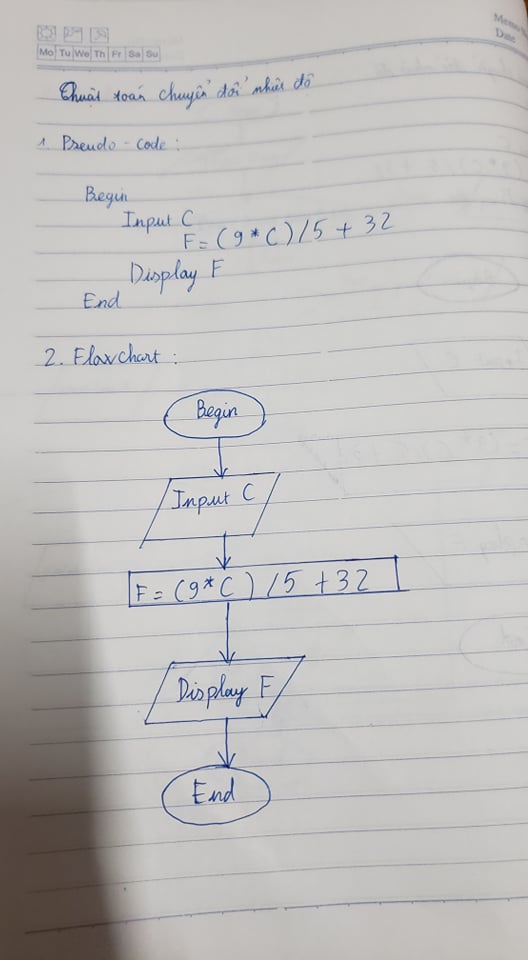 Memo No.
Date
Mo Tu We Th Fr Sa Su
Thuật toán chuyển đổi nhiệt độ
1. Pseudo-code:
Begin
Input C
F = (9*C)/5 + 32
Display F
End
2. Flowchart:
Begin
Input C
F = (9*C) /5 +32
Display F
End